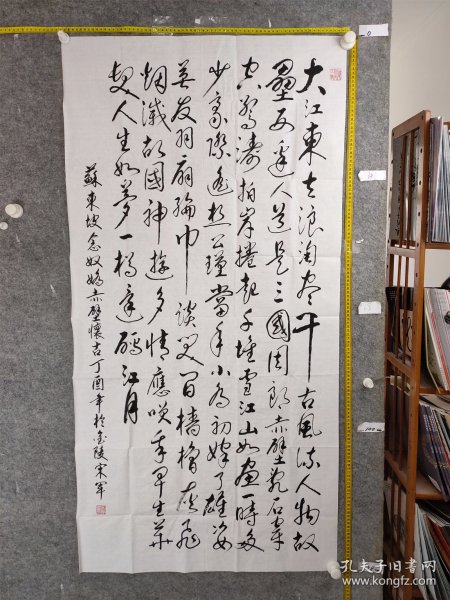 大江東去浪淘盡千古風流人物故
壘西邊人道是三國周郎赤壁亂石穿
空驚濤拍岸捲起千堆雪江山如畫一時多
少豪傑遙想公瑾當年小喬初嫁了雄姿
英發羽扇綸巾談笑間檣櫓灰飛
烟滅故國神遊多情應笑我早生華
髮人生如夢一樽還酹江月
蘇東坡念奴嬌赤壁懷古丁酉年於金陵宋軍
孔夫子旧书网
www.kongfz.com